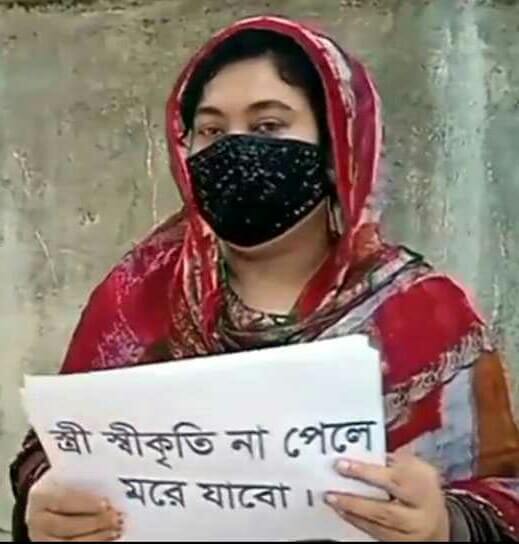 স্ত্রী স্বীকৃতি না পেলে
মরে যাবো ।